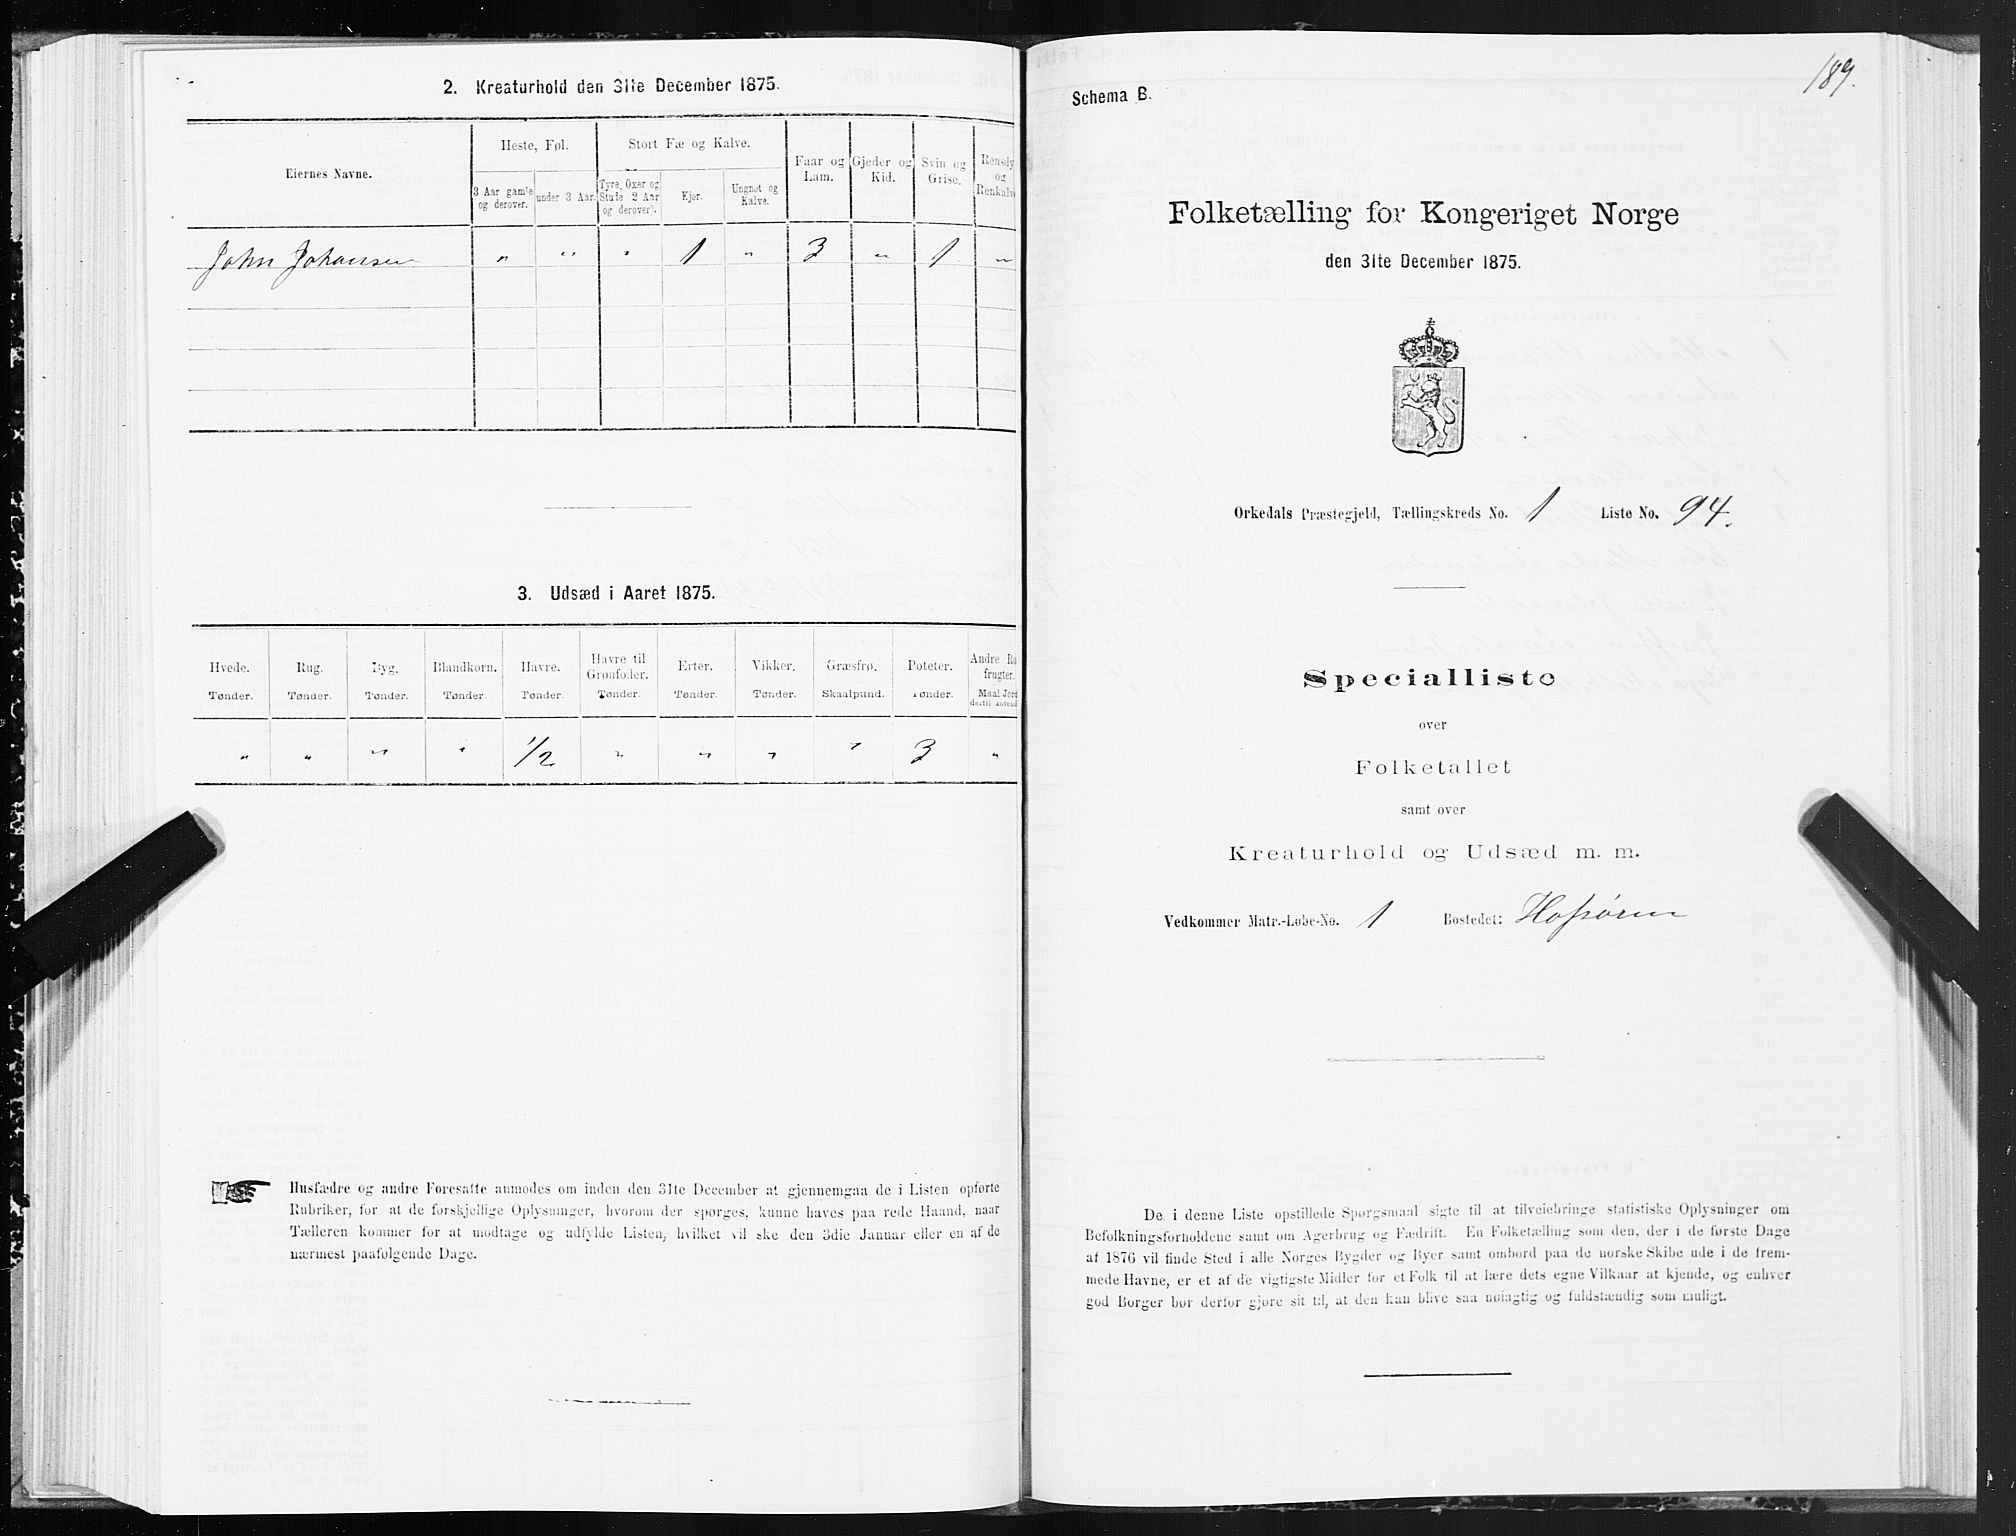 2. Kreaturhold den 31te December 1875.
Eiernes Navne.
Heste, Føl.
Stort Fæ og Kalve.
Faar og Lam.
Gjeder og Kid.
Svin og Grise.
Rensdy
og
Renkalv
3 Aar gamle og derover.
under 3 Aar.
Tyre, Oxer og Stude 2 Aar og derover).
Kjør.
Ungnøt og Kalve.
John Johansen " " " 1 " 3 " 1 "
3. Udsæd i Aaret 1875.
Hvede. Rug. Byg. Blandkorn. Havre. Havre til Grønfoder. Erter. Vikker. Græsfrø. Poteter. Andre Ro frugter.
Tønder. Tønder. Tønder. Tønder. Tønder. Tønder. Tønder. Tønder. Skaalpund. Tønder. Maal Jord dertil anvend
" " " " 1/2 " " " " 3 "
Husfædre og andre Foresatte anmodes om inden den 31te December at gjennemgaa de i Listen opførte
Rubriker, for at de forskjellige Oplysninger, hvorom der spørges, kunne haves paa rede Haand, naar
Tælleren kommer for at modtage og udfylde Listen, hvilket vil ske den 3die Januar eller en af de
nærmest paafølgende Dage.
189.
Schema B.
Folketælling for Kongeriget Norge
den 31te December 1875.
Orkedals Præstegjeld, Tællingskreds No. 1 Liste No. 94.
Specialliste
over
Folketallet
samt over
Kreaturhold og Udsæd m. m.
Vedkommer Matr.-Løbe-No. 1 Bostedet: Hofsøren
De i denne Liste opstillede Spørgsmaal sigte til at tilveiebringe statistiske Oplysninger om
Befolkningsforholdene samt om Agerbrug og Fædrift. En Folketælling som den, der i de første Dage
af 1876 vil finde Sted i alle Norges Bygder og Byer samt ombord paa de norske Skibe ude i de frem-
mede Havne, er et af de vigtigste Midler for et Folk til at lære dets egne Vilkaar at kjende, og enhver
god Borger bør derfor gjøre sit til, at den kan blive saa nøiagtig og fuldstændig som muligt.